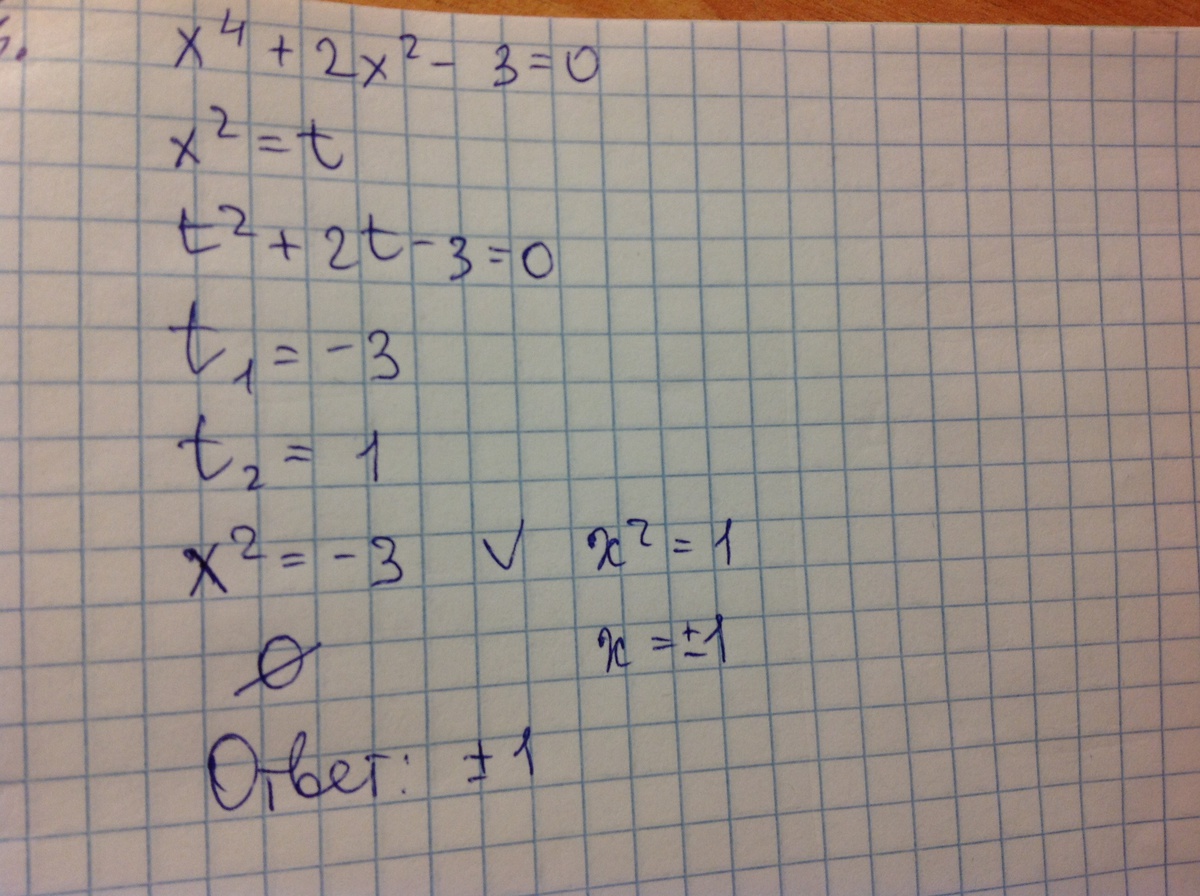 x⁴ + 2x² - 3 = 0
x² = t
t² + 2t - 3 = 0
t₁ = -3
t₂ = 1
x² = -3 ∨ x² = 1
∅ x = ±1
Ответ: ±1